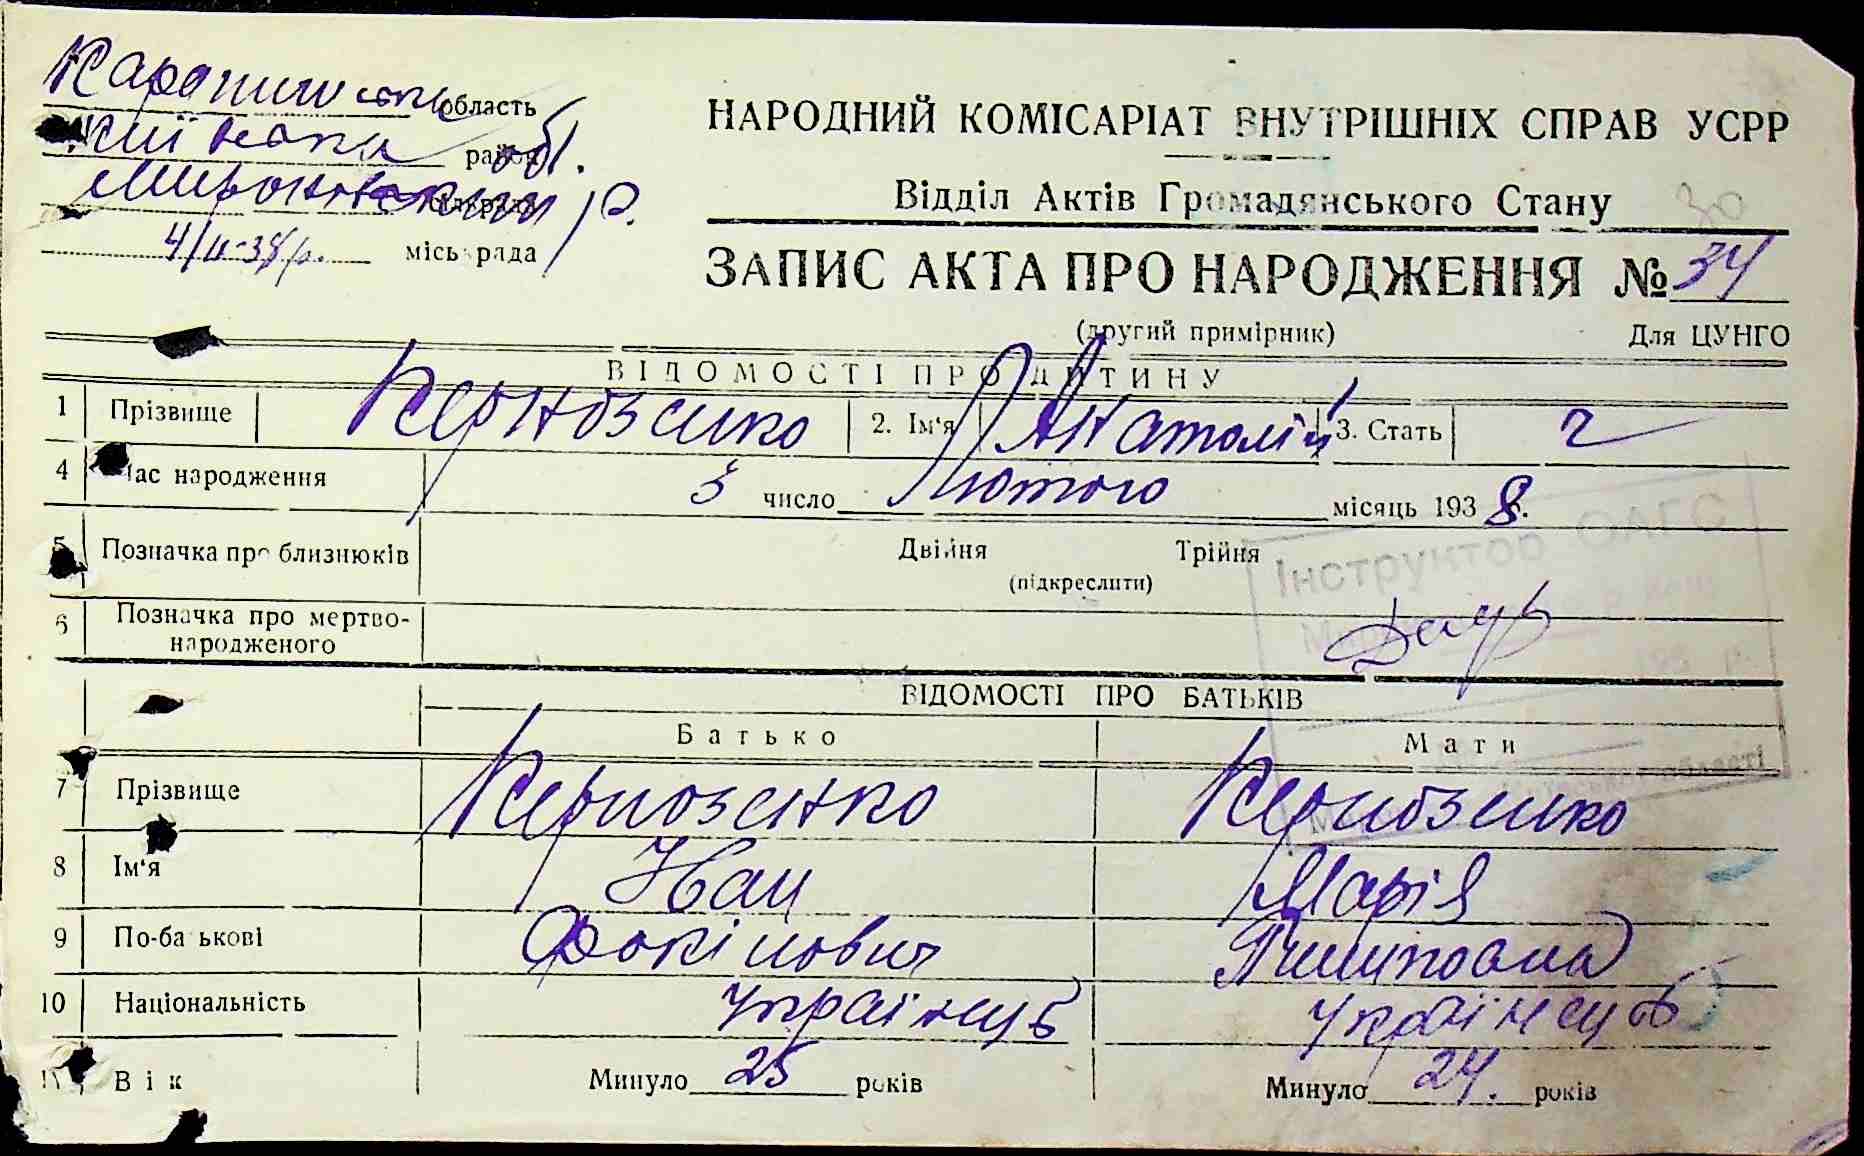 область
Київська обл. район
Миронівський р.
4/II-38 р. міськрада
НАРОДНИЙ КОМІСАРІАТ ВНУТРІШНІХ СПРАВ УСРР
Відділ Актів Громадянського Стану
30
ЗАПИС АКТА ПРО НАРОДЖЕННЯ № 34
(другий примірник) Для ЦУНГО
ВІДОМОСТІ ПРО ДИТИНУ
1 Прізвище Керновенко 2. Ім'я Анатолій 3. Стать ч
4 Час народження 3 число Лютого місяць 1938.
5 Позначка про близнюків Двійня Трійня
(підкреслити)
6 Позначка про мертво-
народженого
Інструктор ОАГС
193 р.
області
ВІДОМОСТІ ПРО БАТЬКІВ
Батько Мати
7 Прізвище
8 Ім'я Іван Марія
9 По-ба ькові Фокінович Пилиповна
10 Національність Українець Українець
11 Вік Минуло 25 років Минуло 24. років